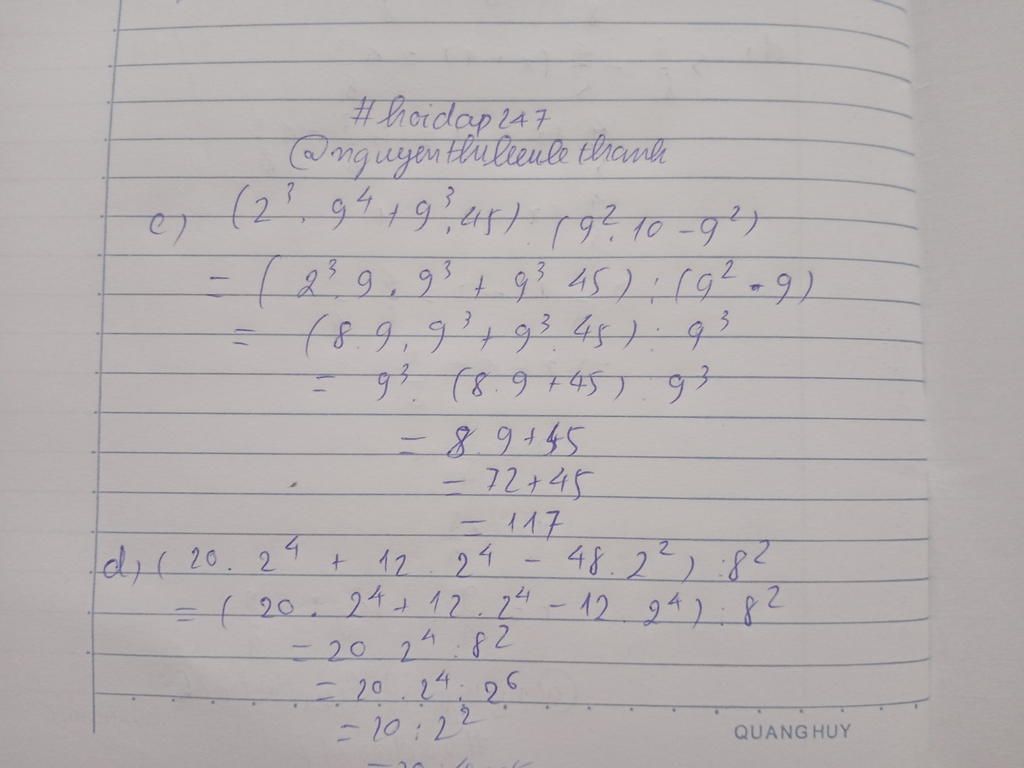 #hoidap247
c) (2³ . 9⁴ + 9³ . 45) : (9² . 10 - 9²)
= ( 2³ . 9 . 9³ + 9³ . 45 ) : (9² . 9)
= (8 . 9 . 9³ + 9³ . 45) : 9³
= 9³ . (8 . 9 + 45) : 9³
= 8 . 9 + 45
= 72 + 45
= 117
d) ( 20 . 2⁴ + 12 . 2⁴ - 48 . 2² ) : 8²
= ( 20 . 2⁴ + 12 . 2⁴ - 12 . 2⁴ ) : 8²
= 20 . 2⁴ : 8²
= 20 . 2⁴ : 2⁶
= 20 : 2²
QUANG HUY